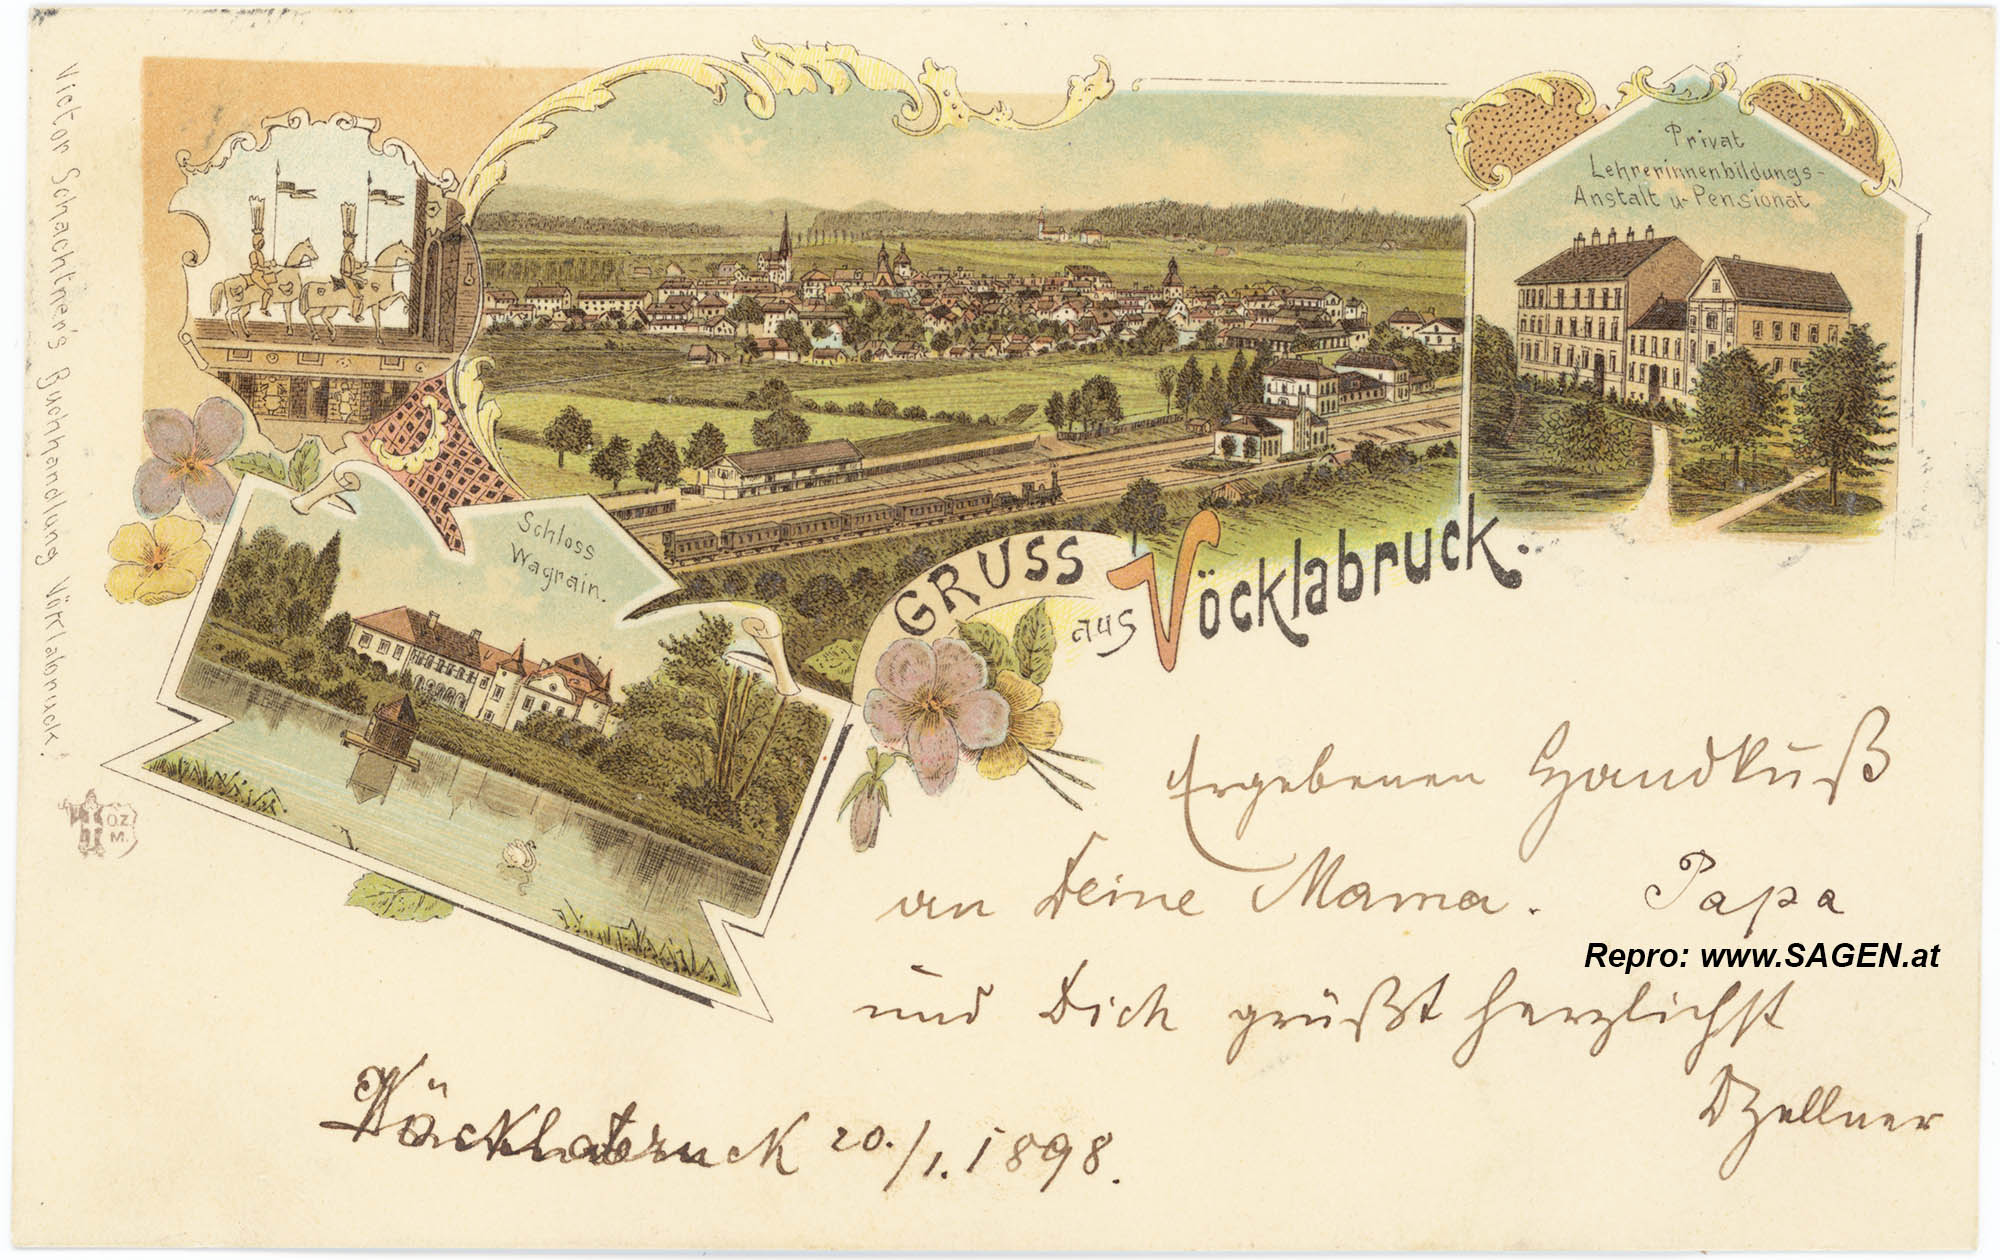 Victor Schachtner's Buchhandlung Vöcklabruck.
Ö.Z.
M.
Privat
Lehrerinnenbildungs-
Anstalt u. Pensionat
Schloss
Wagrain.
GRUSS
aus Vöcklabruck.
Ergebenen Handkuß
an Deine Mama. Papa
Repro: www.SAGEN.at
und Dich grüßt herzlichst
Zellner
Vöcklabruck 20./1. 1898.